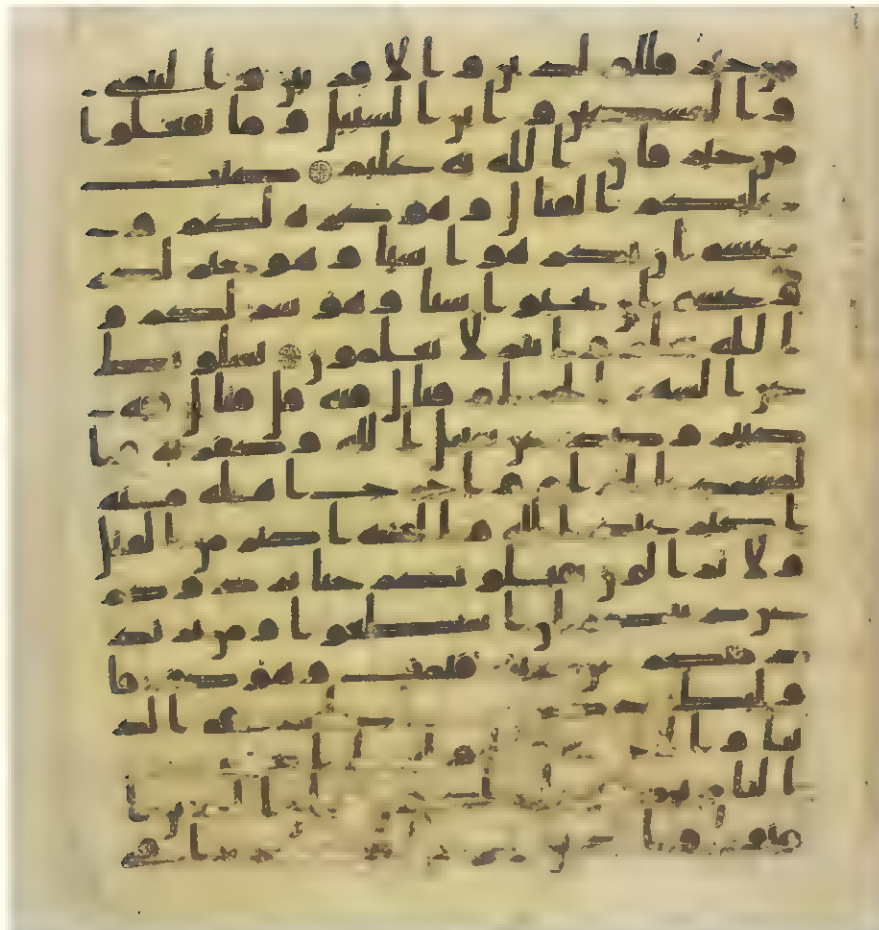 من خير فللولدين والاقربين واليتمى
والمسكين وابن السبيل وما تفعلوا
من خير فان الله به عليم كتب
عليكم القتال وهو كره لكم وعـ
سى ان تكرهوا شيا وهو خير لكم
وعسى ان تحبوا شيا وهو شر لكم و
الله يعلم وانتم لا تعلمون يسلونك
عن الشهر الحرام قتال فيه قل قتال فيه
كبير وصد عن سبيل الله وكفر به وا
لمسجد الحرام واخراج اهله منه
اكبر عند الله والفتنه اكبر من القتل
ولا يزالون يقتلونكم حتى يردوكم
عن دينكم ان استطعوا ومن يرتد
منكم عن دينه فيمت وهو كافر فا
وليك حبطت اعملهم في الد
نيا والاخره واوليك اصحب
النار هم فيها خلدون ان الذين ا
منوا والذين هاجروا وجهدوا في